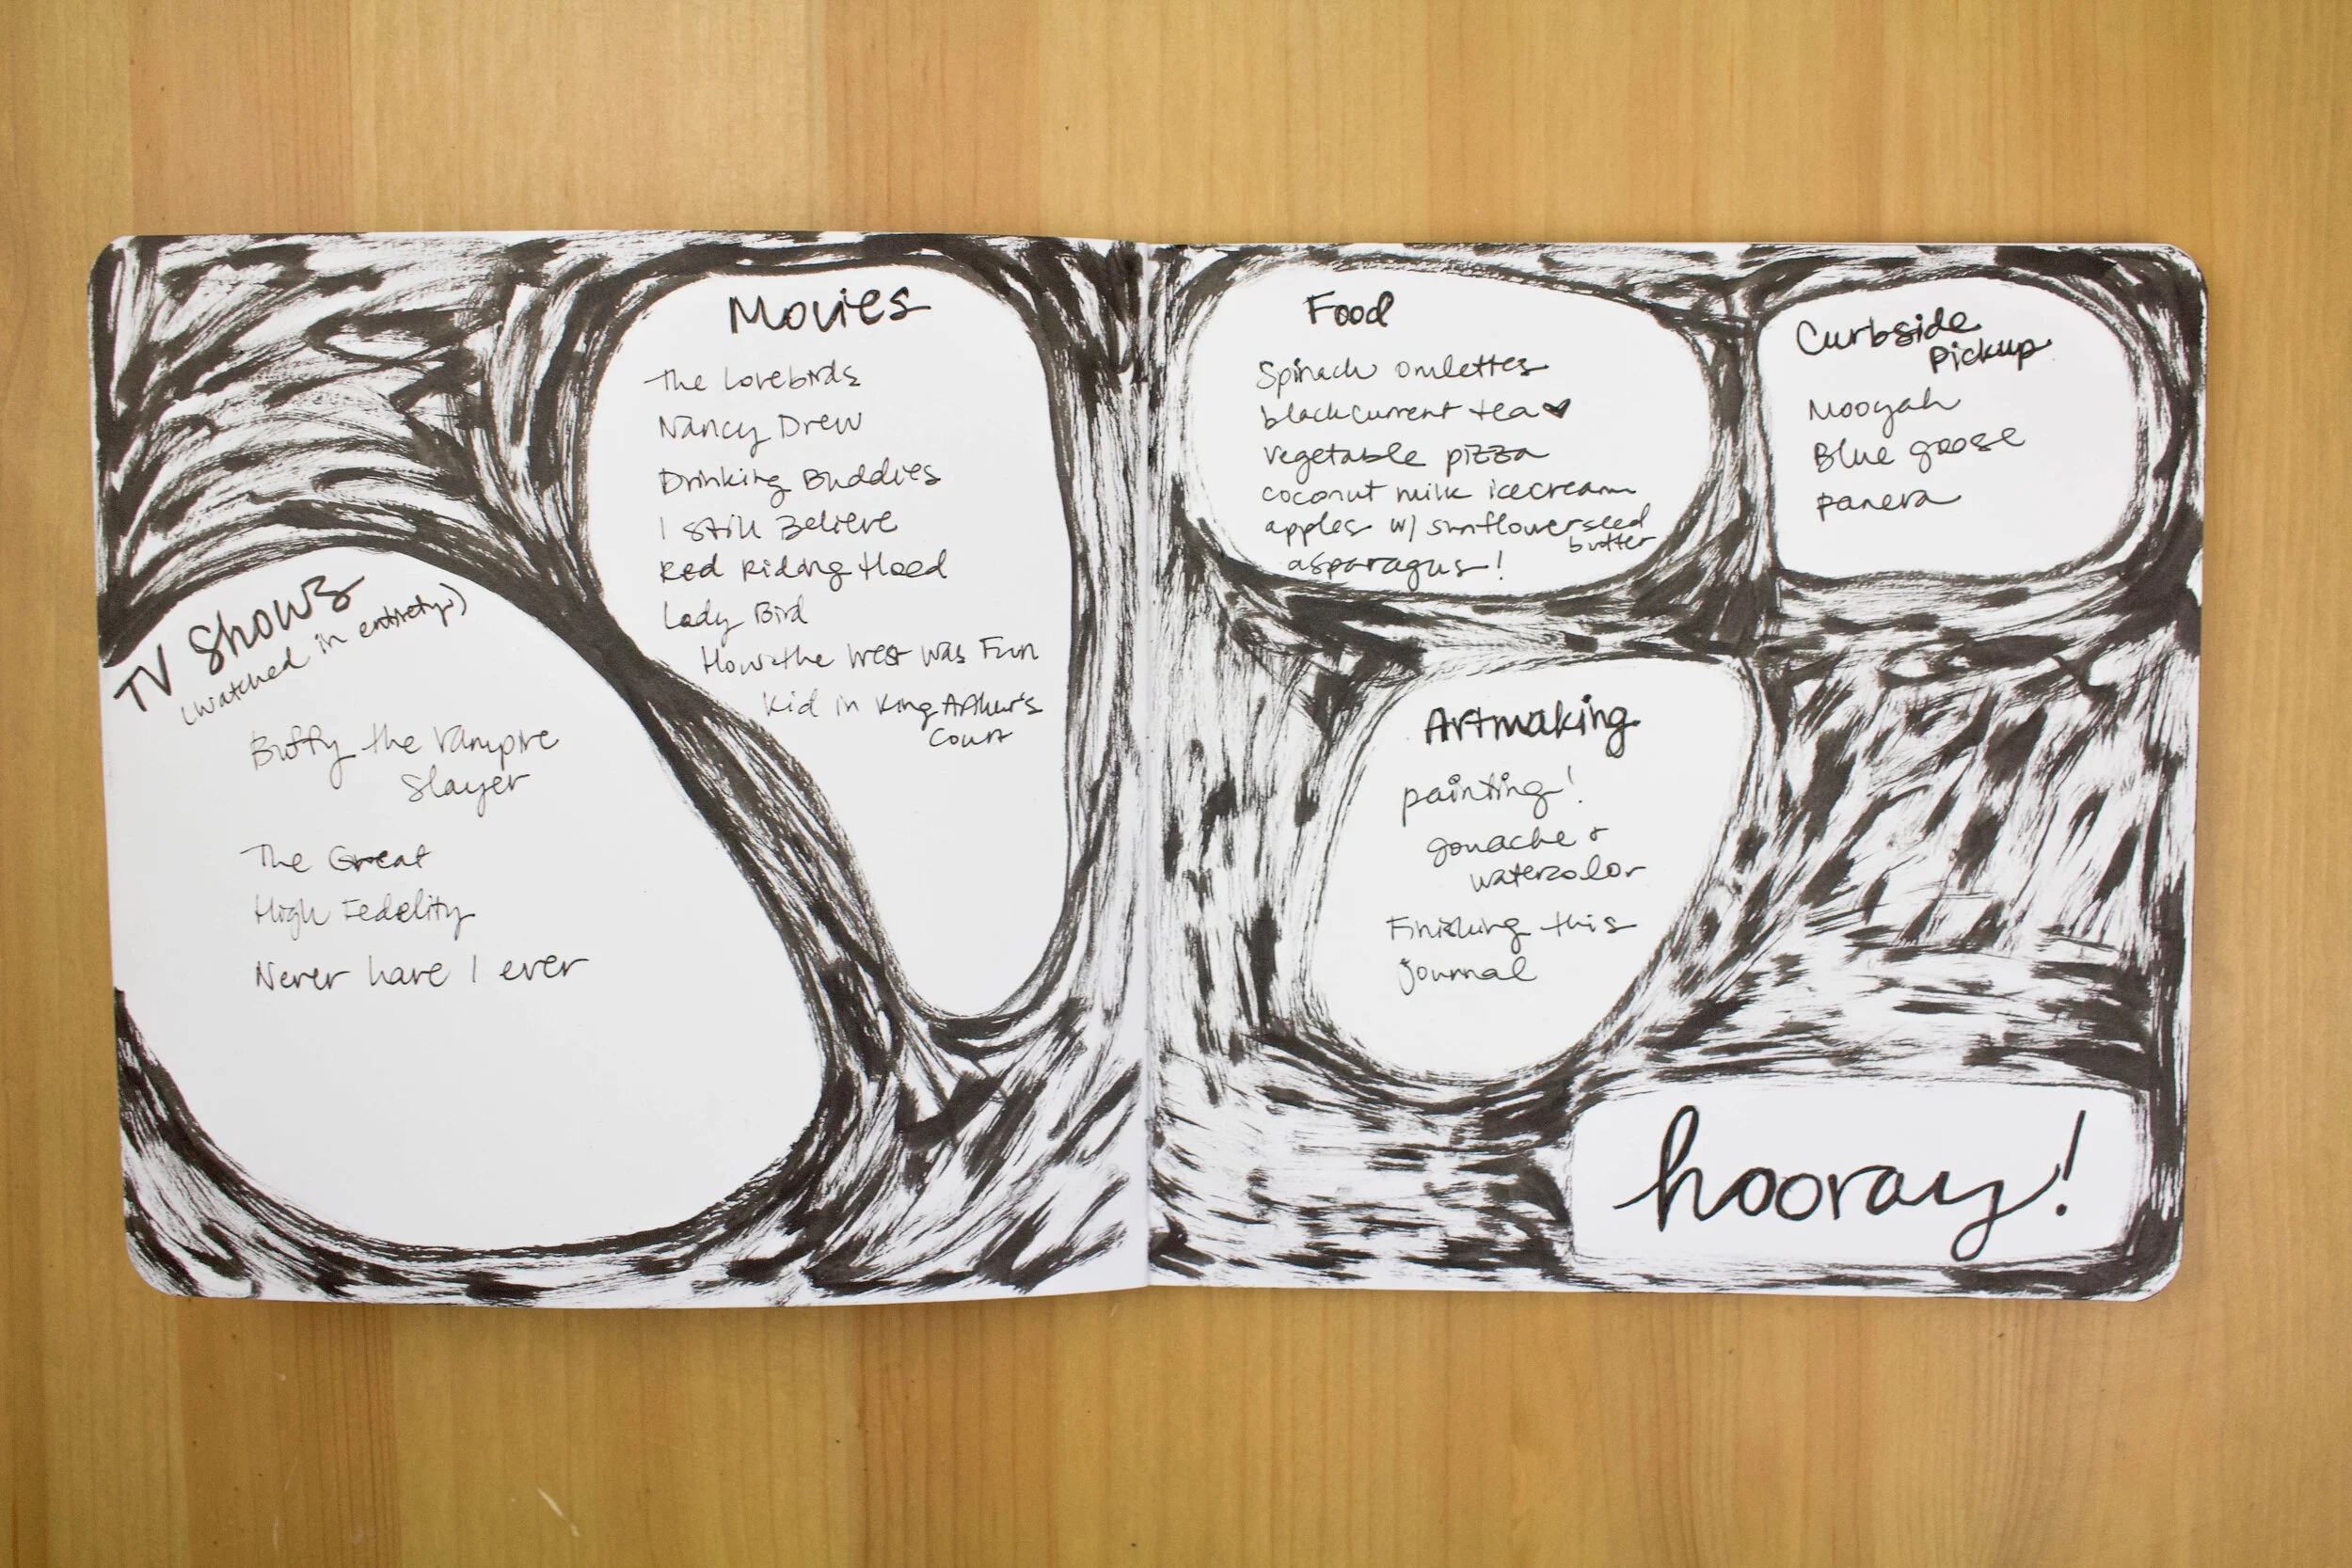 TV Shows
(watched in entirety:)
Buffy the Vampire
Slayer
The Great
High Fedelity
Never have I ever
Movies
The Lovebirds
Nancy Drew
Drinking Buddies
I Still Believe
Red Riding Hood
Lady Bird
How the West Was Fun
Kid in King Arthur's
Court
Food
Spinach omlettes
black current tea ♥
vegetable pizza
coconut milk icecream
apples w/ sunflowerseed
butter
asparagus!
Curbside
Pickup
Mooyah
Blue goose
panera
Artmaking
painting!
gouache +
watercolor
Finishing this
journal
hooray!